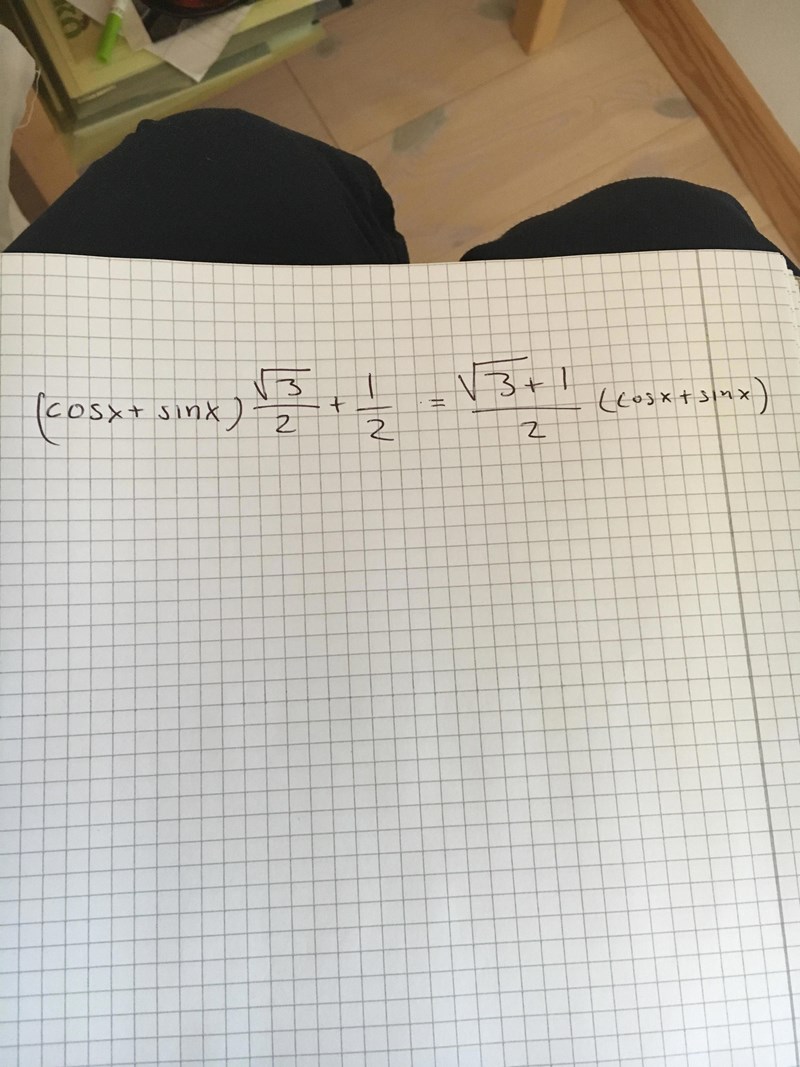 (cosx + sinx) √3/2 + 1/2 = (√3+1)/2 (cosx + sinx)